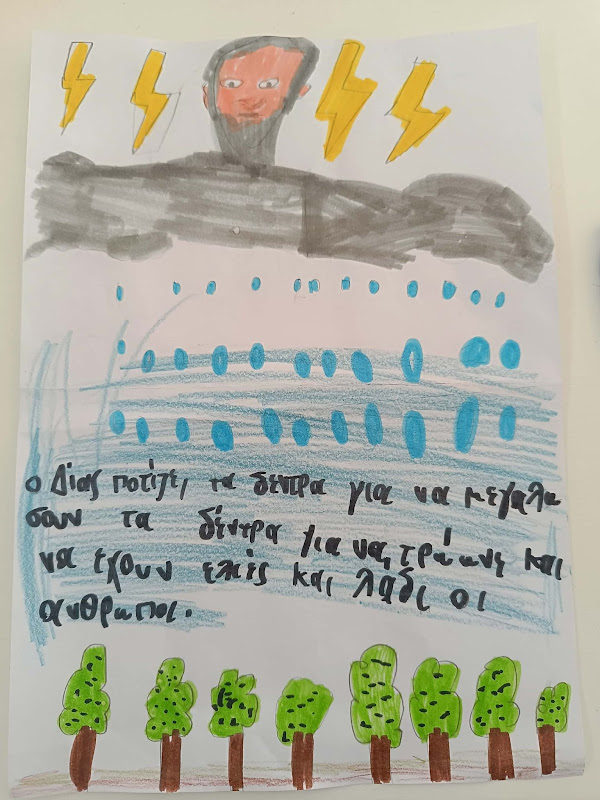 ο Δίας ποτίζει τα δεντρα για να μεγαλω
σουν τα δέντρα για να τρώωνε και
να έχουν ελιές και λαδι οι
ανθρωποι.